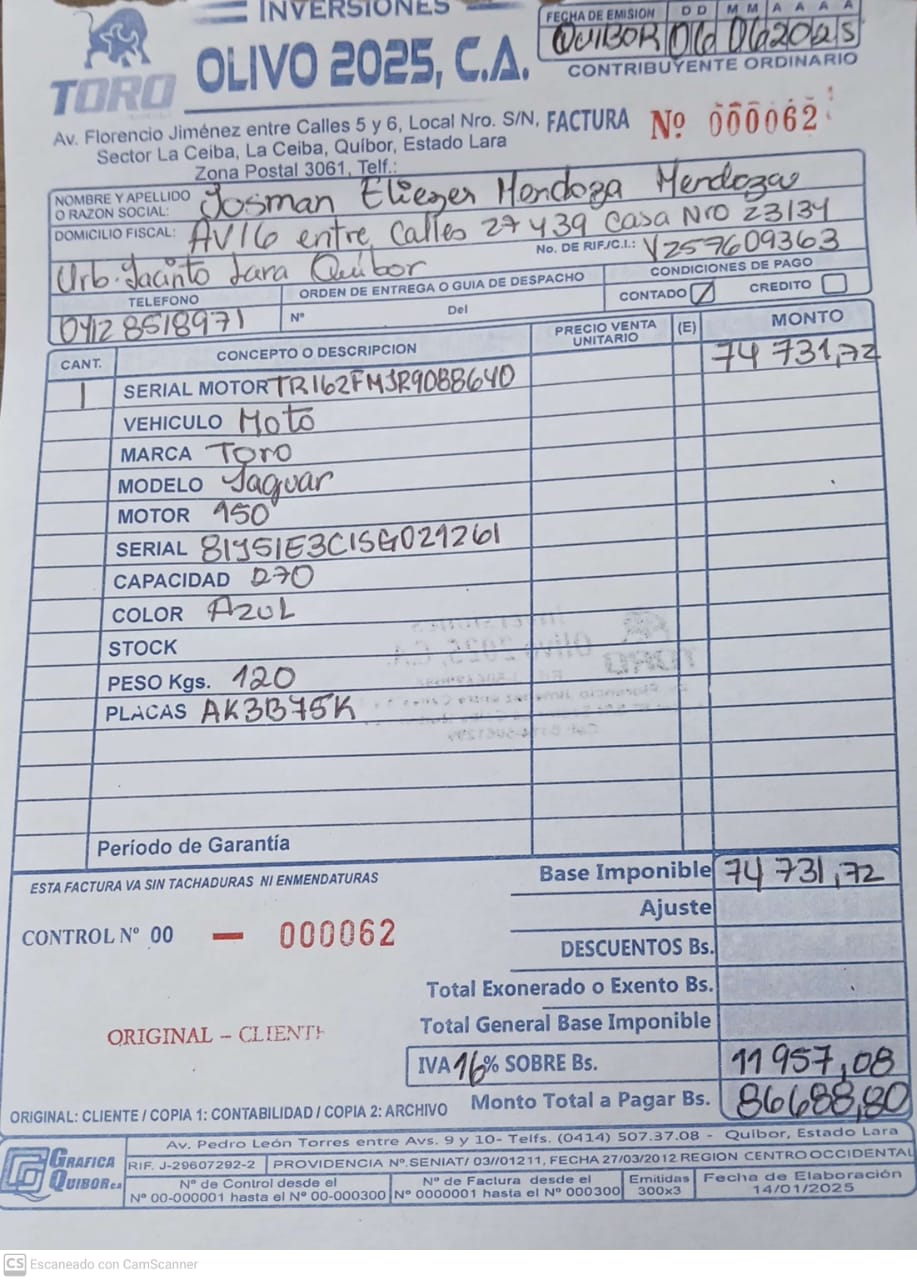 INVERSIONES
OLIVO 2025, C.A.
TORO
FECHA DE EMISION D D M M A A A A
QUIBOR 06 06 2025
CONTRIBUYENTE ORDINARIO
Av. Florencio Jiménez entre Calles 5 y 6, Local Nro. S/N,
Sector La Ceiba, La Ceiba, Quíbor, Estado Lara
Zona Postal 3061, Telf.:
FACTURA Nº 000062
NOMBRE Y APELLIDO O RAZON SOCIAL: Josman Eliezer Mendoza Mendoza
DOMICILIO FISCAL: AV16 entre Calles 27 y 39 Casa Nro 23134
Urb. Jacinto Lara Quibor No. DE RIF/C.I.: V257609363
TELEFONO 04128518971
ORDEN DE ENTREGA O GUIA DE DESPACHO
Nº Del
CONDICIONES DE PAGO
CONTADO CREDITO
CANT. CONCEPTO O DESCRIPCION PRECIO VENTA UNITARIO (E) MONTO
1 SERIAL MOTOR TR162FMJR9088640 74 731,72
VEHICULO Moto
MARCA Toro
MODELO Jaguar
MOTOR 150
SERIAL 81YS1E3C1SG021261
CAPACIDAD 270
COLOR AZUL
STOCK
PESO Kgs. 120
PLACAS AK3B75K
Período de Garantía
ESTA FACTURA VA SIN TACHADURAS NI ENMENDATURAS
CONTROL Nº 00 – 000062
ORIGINAL – CLIENTE
Base Imponible 74 731,72
Ajuste
DESCUENTOS Bs.
Total Exonerado o Exento Bs.
Total General Base Imponible
IVA 16% SOBRE Bs. 11 957,08
Monto Total a Pagar Bs. 86688,80
ORIGINAL: CLIENTE / COPIA 1: CONTABILIDAD / COPIA 2: ARCHIVO
GRAFICA QUIBOR C.A
Av. Pedro León Torres entre Avs. 9 y 10- Telfs. (0414) 507.37.08 - Quibor, Estado Lara
RIF. J-29607292-2 PROVIDENCIA Nº SENIAT/ 03//01211, FECHA 27/03/2012 REGION CENTROOCCIDENTAL
Nº de Control desde el Nº 00-000001 hasta el Nº 00-000300
Nº de Factura desde el Nº 0000001 hasta el Nº 000300
Emitidas 300x3
Fecha de Elaboración 14/01/2025
CS Escaneado con CamScanner